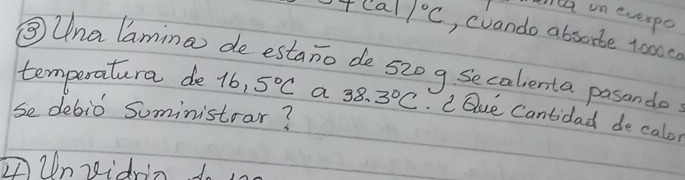 cal/°C, cuando absorbe 1000 ca
un cuerpo
③ Una lámina de estaño de 520 g. Se calienta pasando s
temperatura de 16,5°C a 38.3°C. ¿Qué cantidad de calor
se debió suministrar?
④ Un vidrio